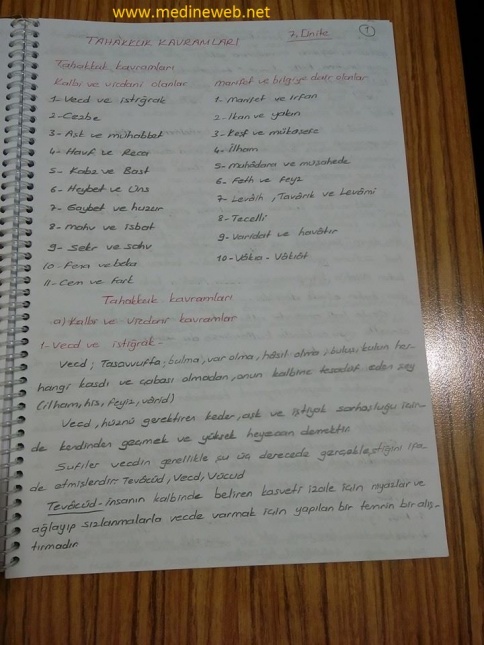 www.medineweb.net
7. Ünite
1
TAHAKKUK KAVRAMLARI
Tahakkuk kavramları
Kalbi ve vicdani olanlar
1- Vecd ve istiğrak
2- Cezbe
3- Aşk ve muhabbet
4- Havf ve Reca
5- Kabz ve Bast
6- Heybet ve Üns
7- Gaybet ve huzur
8- mahv ve isbat
9- Sekr ve sahv
10- Fena ve beka
11- Cem ve fark
marifet ve bilgiye dair olanlar
1- marifet ve irfan
2- ikan ve yakin
3- Keşf ve mükaşefe
4- ilham
5- muhâdara ve müşahede
6- Feth ve feyz
7- Levâih, Tavârık ve Levâmi
8- Tecelli
9- varidat ve havâtır
10- Vâkıa - Vâkıât
Tahakkuk kavramları
a) Kalbi ve vicdani kavramlar
1- Vecd ve istiğrak -
Vecd; Tasavvufta; bulma, var olma, hâsıl olma, buluş, kulun her-
hangi kasdı ve çabası olmadan, onun kalbine tesadüf eden şey
(ilham, his, feyiz, vârid)
Vecd, hüznü gerektiren keder, aşk ve iştiyak sarhoşluğu için-
de kendinden geçmek ve yüksek heyecan demektir.
Sufiler vecdin genellikle şu üç derecede gerçekleştiğini ifa-
de etmişlerdir: Tevâcüd, Vecd, Vücud
Tevâcüd - insanın kalbinde beliren kasveti izale için niyazlar ve
ağlayıp sızlanmalarla vecde varmak için yapılan bir temrin bir alış-
tırmadır